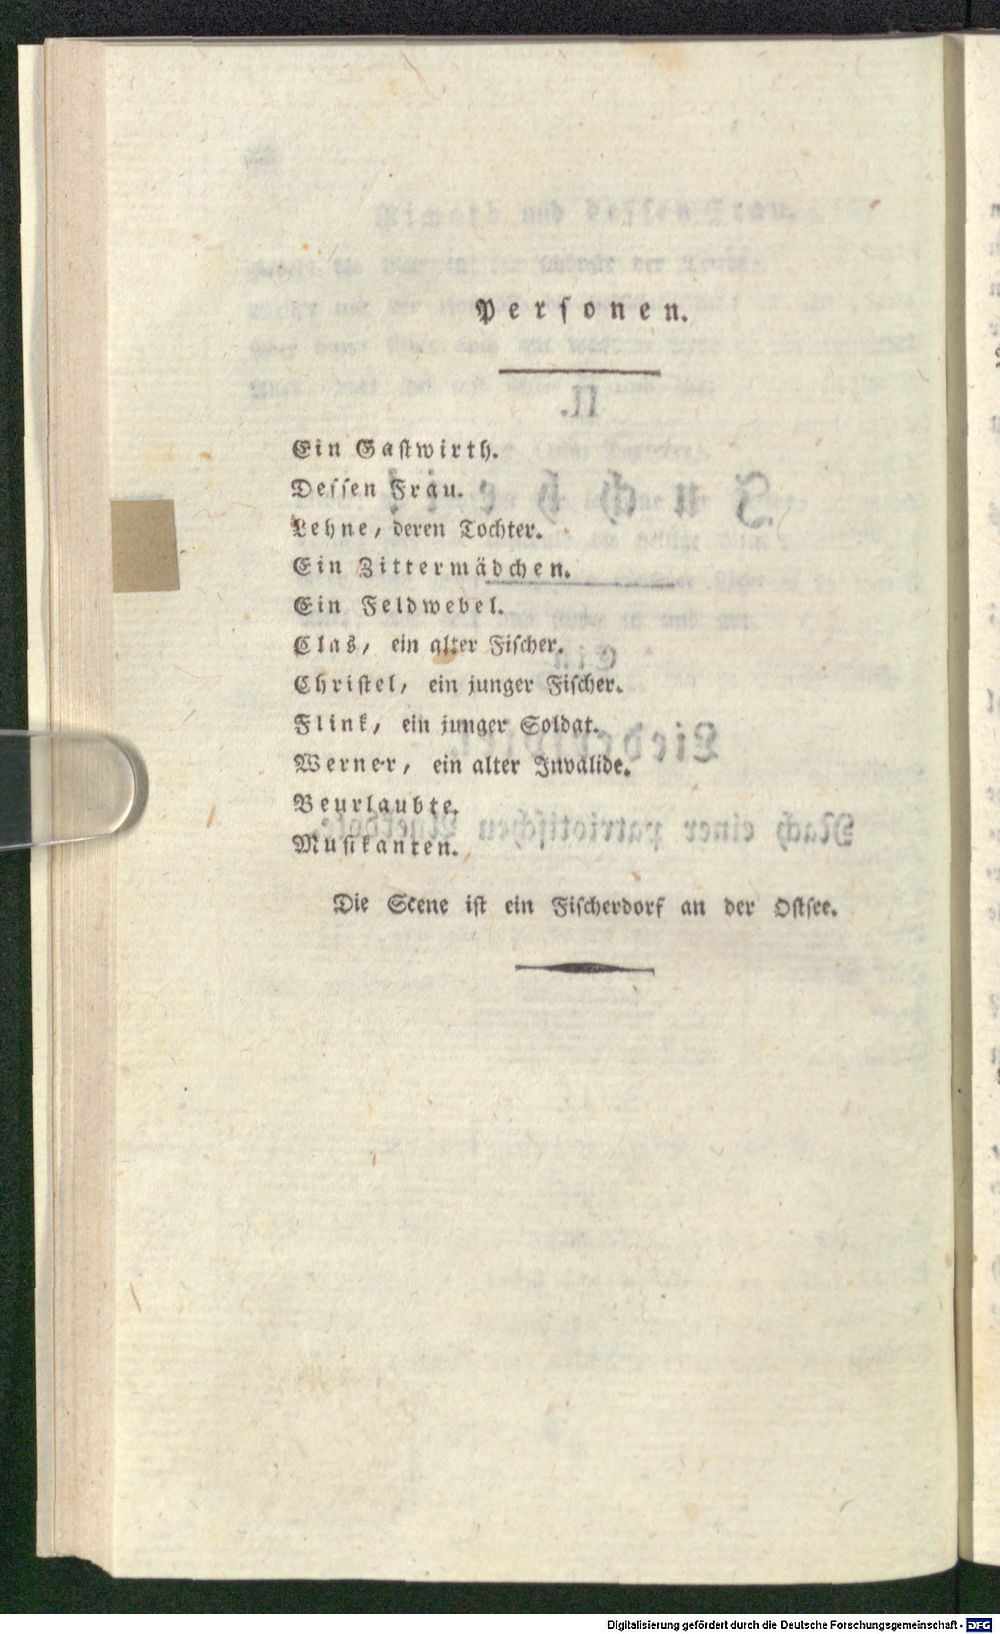 Personen.
Ein Gastwirth.
Dessen Frau.
Lehne, deren Tochter.
Ein Zittermädchen.
Ein Feldwebel.
Clas, ein alter Fischer.
Christel, ein junger Fischer.
Flink, ein junger Soldat.
Werner, ein alter Invalide.
Beurlaubte.
Musikanten.
Die Scene ist ein Fischerdorf an der Ostsee.
Digitalisierung gefördert durch die Deutsche Forschungsgemeinschaft - DFG